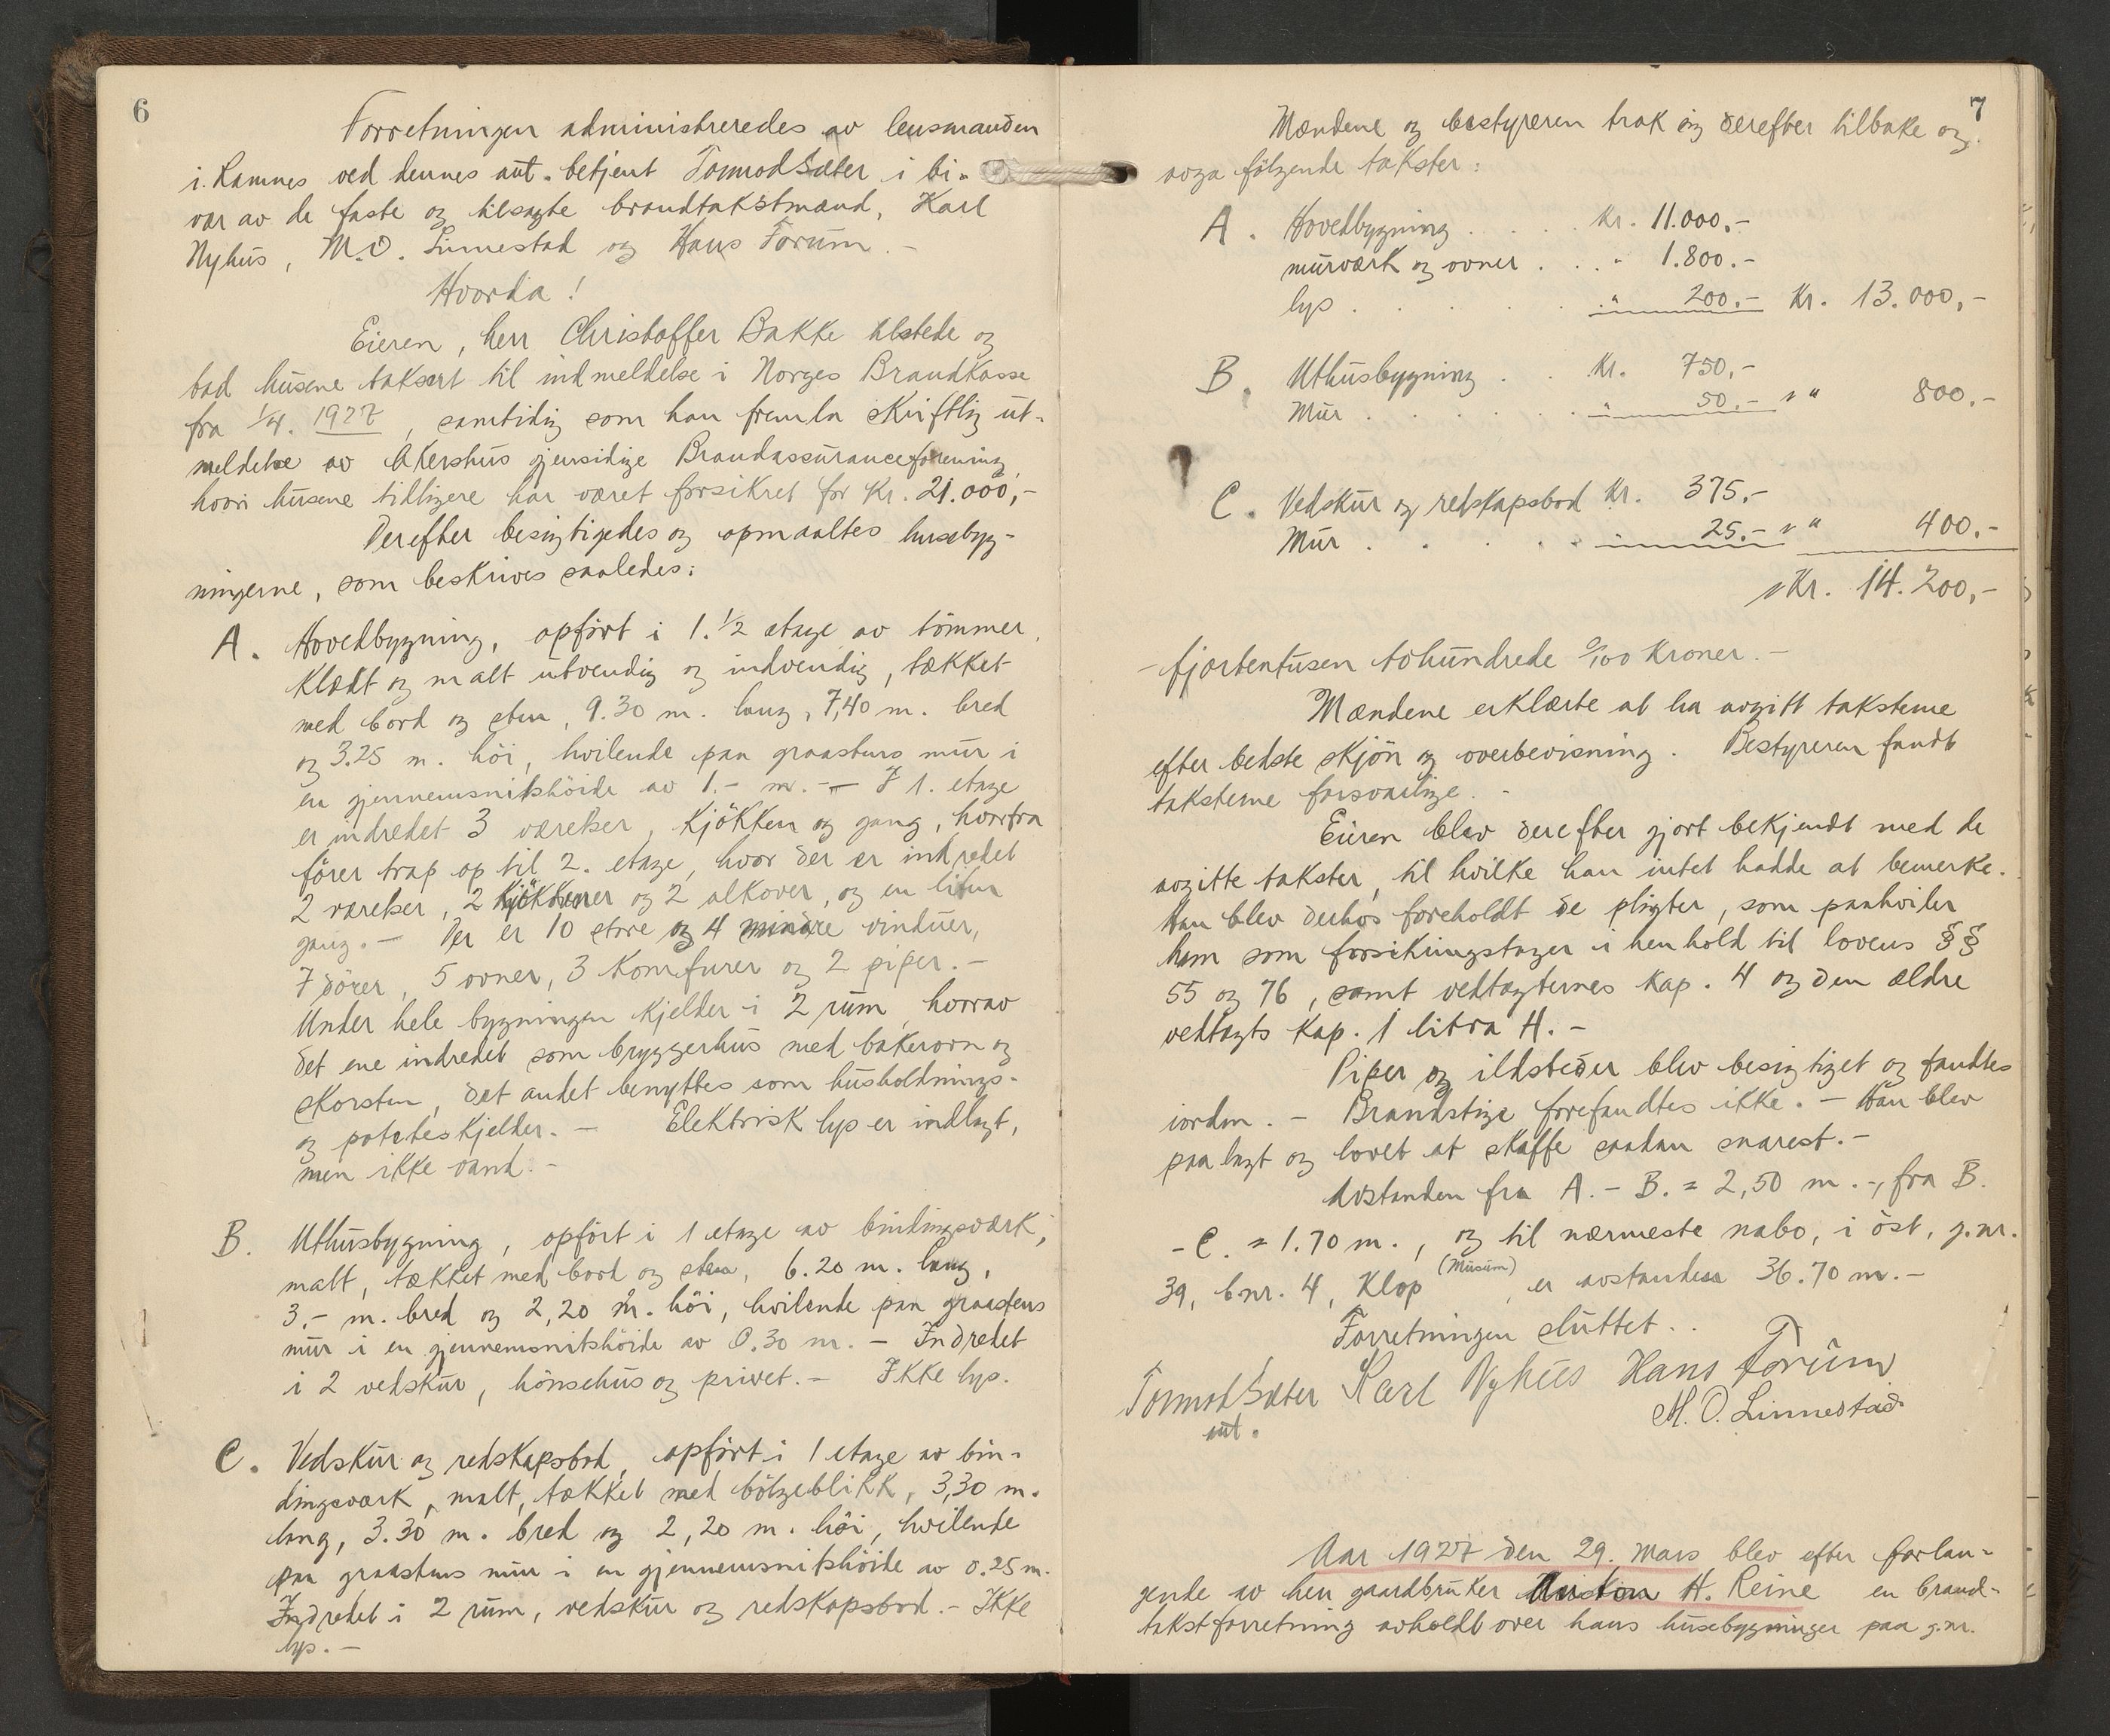 6
Forretningen administreredes av lensmanden
i Ramnes ved dennes aut. betjent Tormod Sæter i bi-
vær av de faste og tilsagte brandtakstmænd, Karl
Nyhus, M.O. Linnestad og Hans Forum. -
Hvorda!
Eieren, herr Christoffer Bakke tilstede og
bad husene taksert til indmeldelse i Norges Brandkasse
fra 1/4. 1927, samtidig som han fremla skriftlig ut-
meldelse av Akershus gjensidige Brandassuranceforening,
hvori husene tidligere har været forsikret for Kr. 21.000,-
Derefter besigtigedes og opmaaltes husebyg-
ningerne, som beskrives saaledes:
A. Hovedbygning, opført i 1.1/2 etage av tømmer,
klædt og malt utvendig og indvendig, tækket
med bord og sten, 9.30 m. lang, 7,40 m. bred
og 3.25 m. høi, hvilende paa graastens mur i
en gjennemsnitshøide av 1,- m. - - I 1. etage
er indredet 3 værelser, kjøkken og gang, hvorfra
fører trap op til 2. etage, hvor der er indredet
2 værelser, 2 kjøkkener og 2 alkover, og en liten
gang. - Der er 10 store og 4 mindre vinduer,
7 dører, 5 ovner, 3 komfurer og 2 piper. -
Under hele bygningen kjelder i 2 rum, hvorav
det ene indredet som bryggerhus med bakerovn og
skorsten, det andet benyttes som husholdnings-
og poteteskjelder. - Elektrisk lys er indlagt,
men ikke vand. -
B. Uthusbygning, opført i 1 etage av bindingsværk,
malt, tækket med bord og sten, 6.20 m. lang,
3,- m. bred og 2,20 m. høi, hvilende paa graastens
mur i en gjennemsnitshøide av 0.30 m. - Indredet
i 2 vedskur, hønsehus og privet. - Ikke lys.
C. Vedskur og redskapsbod, opført i 1 etage av bin-
dingsværk, malt, tækket med bølgeblikk, 3,30 m.
lang, 3.30 m. bred og 2,20 m. høi, hvilende
paa graastens mur i en gjennemsnitshøide av 0.25 m.
Indredet i 2 rum, vedskur og redskapsbod. - Ikke
lys. -
7
Mændene og bestyreren trak sig derefter tilbake og
avga følgende takster:
A. Hovedbygning . . . . Kr. 11.000,-
murværk og ovner . . . " 1.800.-
lys . . . . . . " 200,- Kr. 13.000,-
B. Uthusbygning . . Kr. 750,-
Mur . . . . . . " 50.- " 800.-
C. Vedskur og redskapsbod Kr. 375,-
Mur . . . . . 25.- " 400.-
Kr. 14.200,-
- fjortentusen tohundrede 0/100 kroner. -
Mændene erklærte at ha avgitt taksterne
efter bedste skjøn og overbevisning. Bestyreren fandt
taksterne forsvarlige. -
Eieren blev derefter gjort bekjendt med de
avgitte takster, til hvilke han intet hadde at bemerke.
Han blev derhos foreholdt de pligter, som paahviler
ham som forsikringstager i henhold til lovens §§
55 og 76, samt vedtægternes kap. 4 og den ældre
vedtægts kap. 1 litra H. -
Piper og ildsteder blev besigtiget og fandtes
iorden. - Brandstige forefandtes ikke. - Han blev
paalagt og lovet at skaffe saadan snarest. -
Avstanden fra A. - B. = 2,50 m. -, fra B.
- C. = 1.70 m., og til nærmeste nabo, i øst, g.nr.
39, b.nr. 4, Klop (Musum), er avstanden 36.70 m. -
Forretningen sluttet. .
Tormod Sæter Karl Nyhus Hans Forum
aut. M. O. Linnestad
Aar 1927 den 29. mars blev efter forlan-
gende av herr gaardbruker Anton H. Reine en brand-
takstforretning avholdt over hans husebygninger paa g.nr.